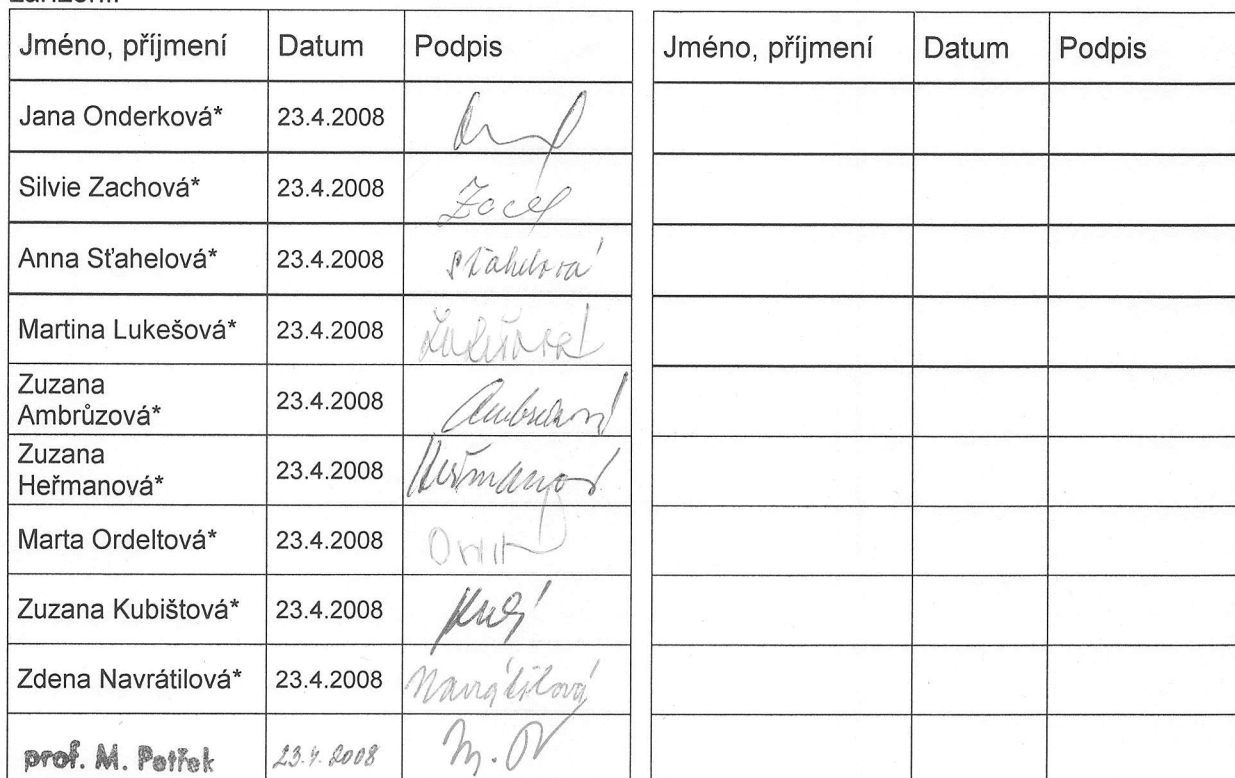 Jméno, příjmení Datum Podpis
Jana Onderková* 23.4.2008
Silvie Zachová* 23.4.2008
Anna Sťahelová* 23.4.2008 Sťahelová
Martina Lukešová* 23.4.2008 Lukešová
Zuzana
Ambrůzová* 23.4.2008
Zuzana
Heřmanová* 23.4.2008 Heřmanová
Marta Ordeltová* 23.4.2008
Zuzana Kubištová* 23.4.2008
Zdena Navrátilová* 23.4.2008 Navrátilová
prof. M. Petřek 23.4.2008
Jméno, příjmení Datum Podpis